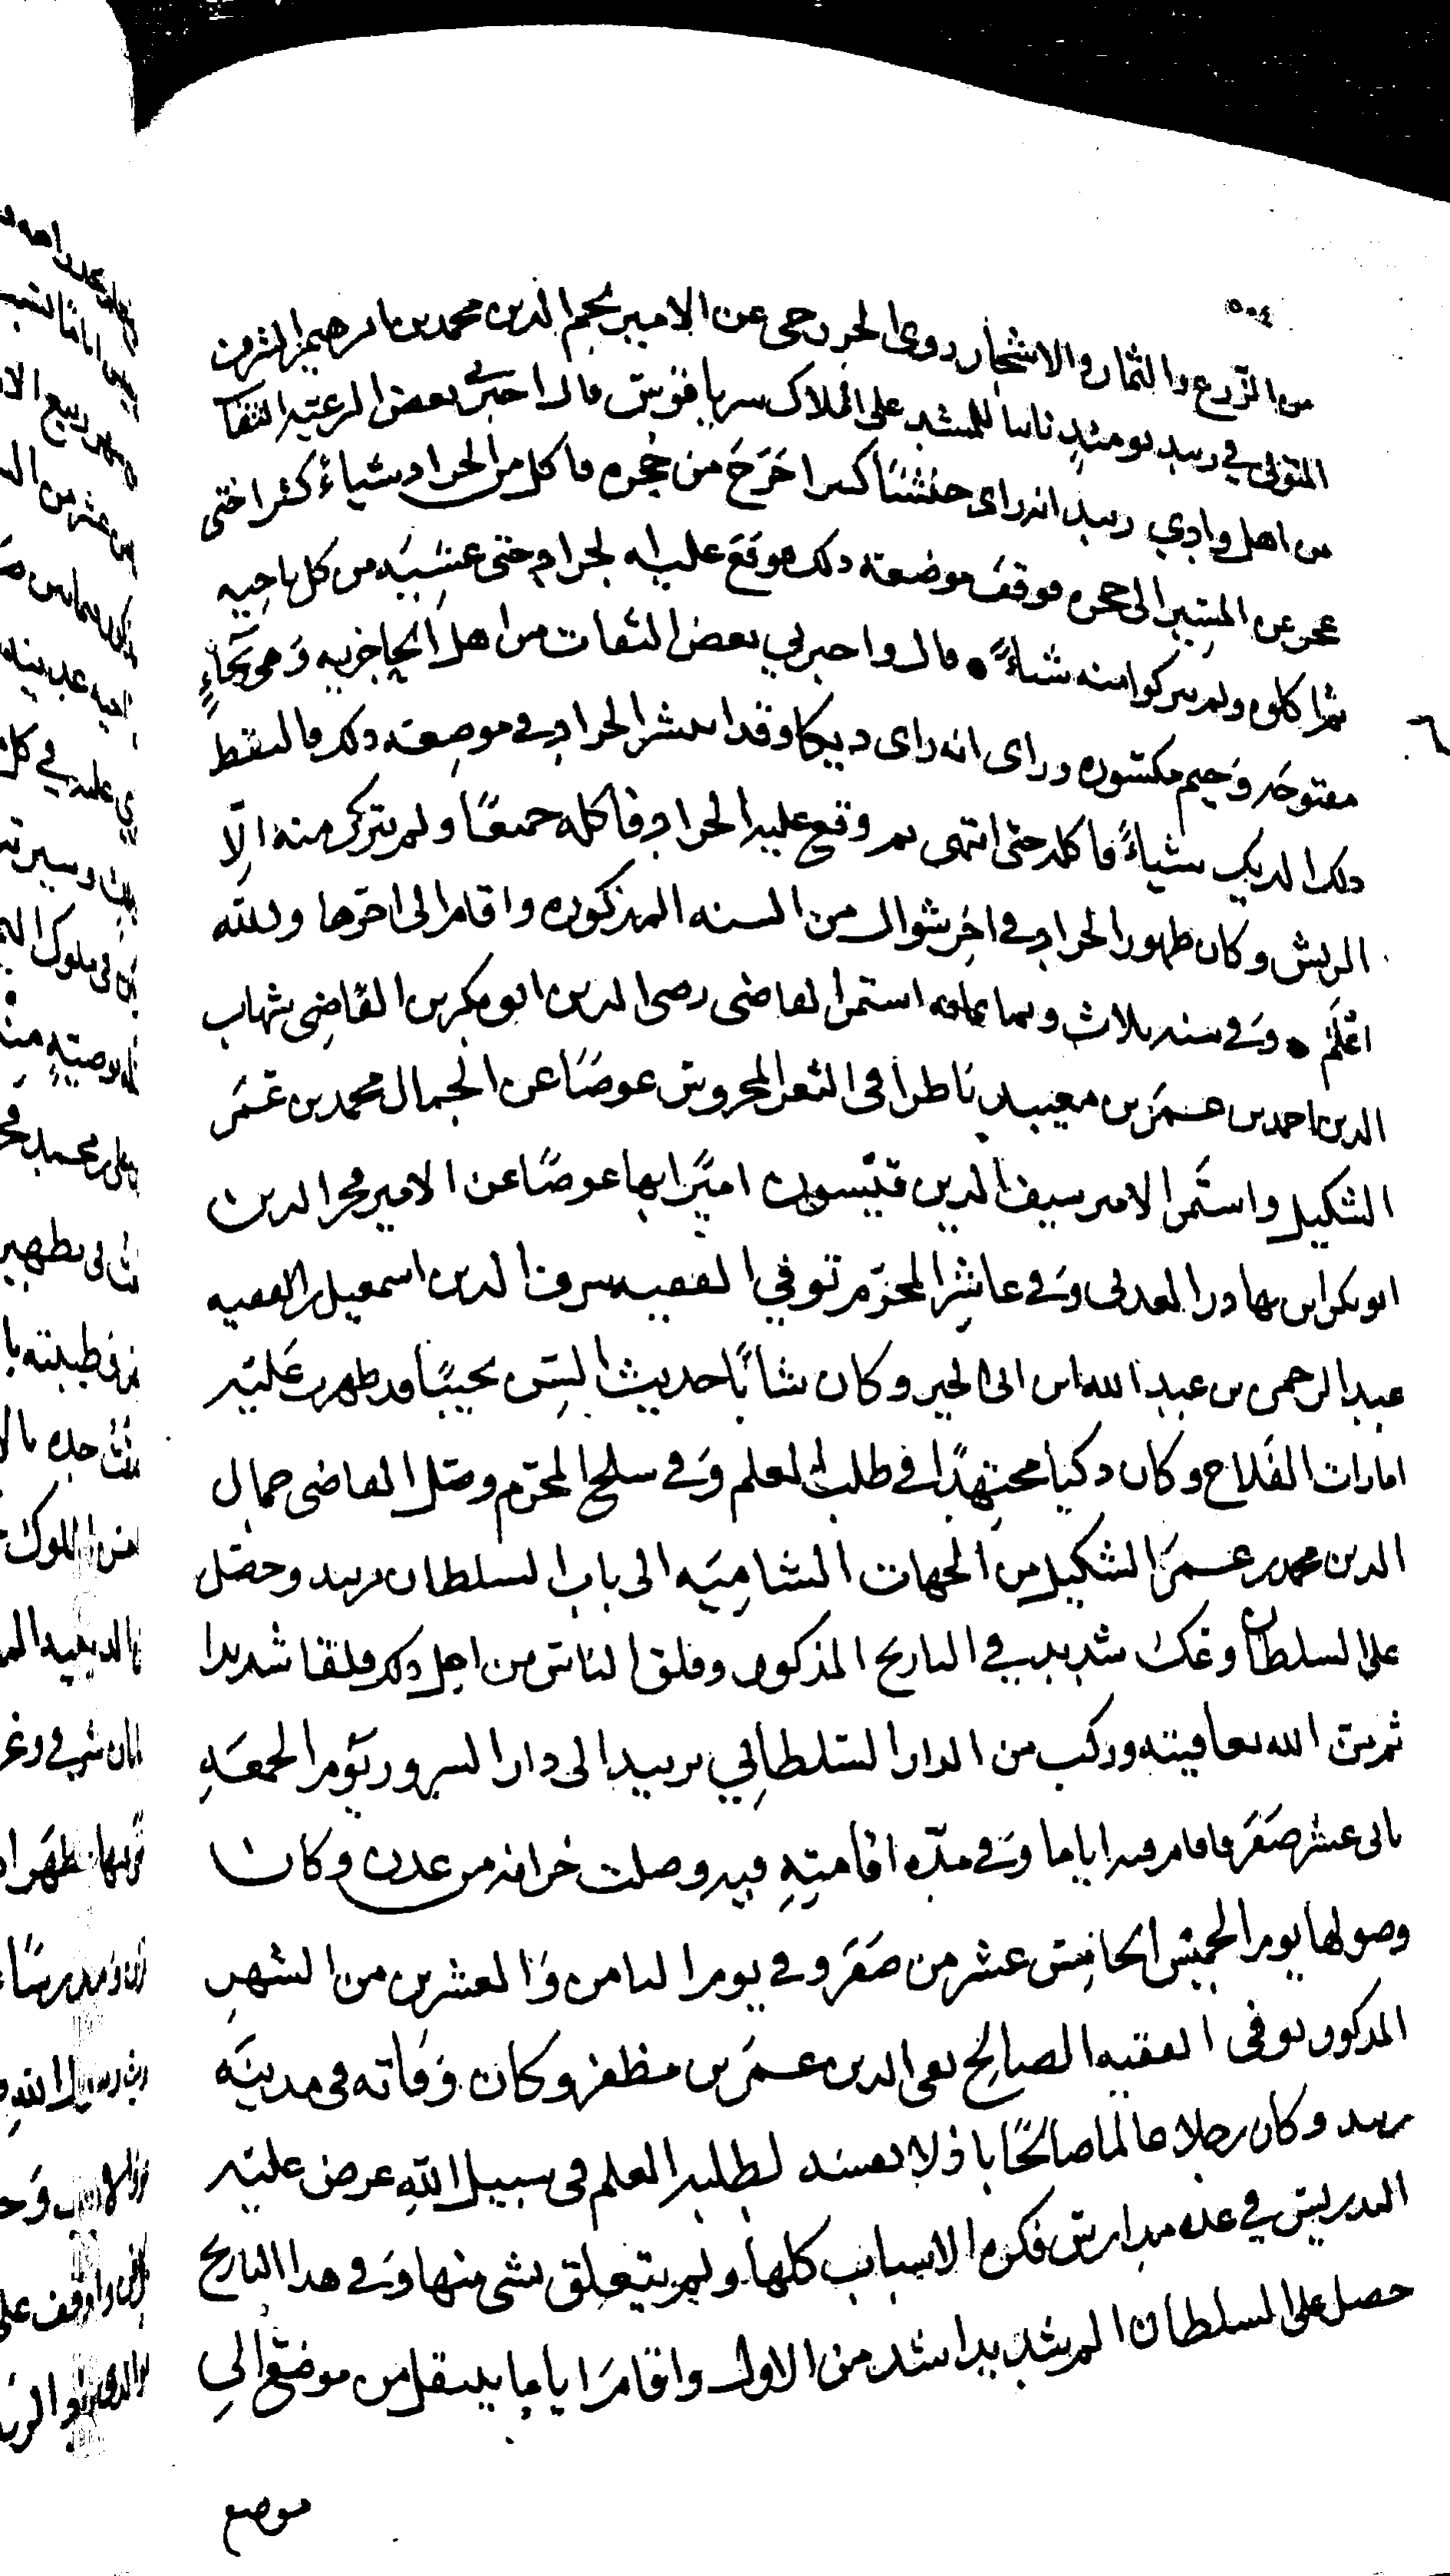 ٥٠٤
من الزرع والثمار والاشجار روى الخزرجى عن الامير نجم الدين محمد بن ابراهيم الشرف
المتولى في زبيد يومئذ نائبا للمشد على املاك سرياقوس قال اخبرنى بعض الرعية الثقات
من اهل وادي زبيد انه راى حنشًا كبيرا خَرَجَ من جُحره فاكل من الجراد شياءً كثيرا حتى
عجز عن المسير الى جحره فوقف موضعه ذلك فوقع عليه الجراد حتى غشيه من كل ناحيه
ثم اكلوه ولم يتركوا منه شياءً قال واخبرني بعض الثقات من اهل
مفتوحه وجيم مكسوره وراى انه راى ديكا وقد انتشر الجراد في موضعه ذلك فالتقط
ذلك الديك شياءً فاكله حتى انتهى ثم وقع عليه الجراد فاكله جميعًا ولم يترك منه الّا
الريش وكان ظهور الجراد في اخر شوال من السنه المذكوره واقام الى اخرها والله
اعلم وفي سنه ثلاث وثمانمائه استمر القاضى رضى الدين ابو بكر بن القاضي شهاب
الدين احمد بن عمر بن معيبد ناظرا فى الثغر المحروس عوضًا عن الجمال محمد بن عمر
الشكيل واستمر الامير سيف الدين قيسون اميرًا بها عوضًا عن الامير فخر الدين
ابو بكر ابن بهادر العدلى وفي عاشر المحرم توفي الفقيه شرف الدين اسمعيل بن الفقيه
عبد الرحمن بن عبد الله ابن ابى الخير وكان شابًا حديث السن نجيبًا قد ظهرت عليه
امارات الفلاح وكان ذكيا مجتهدًا في طلب العلم وفي سلخ المحرم وصل القاضى جمال
الدين محمد بن عمر الشكيل من الجهات الشاميه الى باب السلطان بزبيد وحصل
على السلطان وعك شديد في التاريخ المذكور وقلق الناس من اجل ذلك قلقا شديدا
ثم منّ الله بعافيته وركب من الدار السلطاني بزبيد الى دار السرور يوم الجمعه
ثانى عشر صفر فاقام فيه اياما وفي مدّه اقامته فيه وصلت خزانه من عدن وكان
وصولها يوم الخميس الخامس عشر من صفر وفي يوم الثامن والعشرين من الشهر
المذكور توفى الفقيه الصالح تقى الدين عمر بن مظفر وكان وفاته فى مدينه
زبيد وكان رجلا عالما صالحًا باذلا نفسه لطلبه العلم فى سبيل الله عرض عليه
التدريس في عده مدارس فكره الاسباب كلها ولم يتعلق بشى منها وفي هذا التاريخ
حصل على السلطان الم شديد اشد من الاول واقام اياما ينتقل من موضع الى
موضع